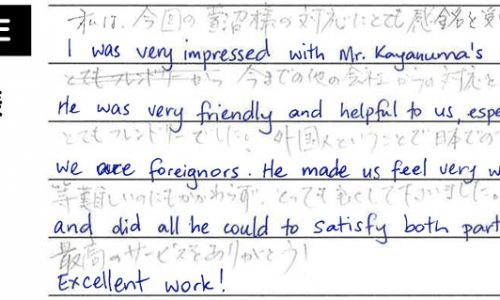 私は、今回の菅沼様の対応にとても感銘を受
I was very impressed with Mr. Kayanuma's
から 今までの他の会社からの対応と
He was very friendly and helpful to us, espe
とてもフレンドリーでした。外国人ということで日本での
we are foreignors. He made us feel very w
等難しいのにもかかわらず、とってもよくして下さいました。
and did all he could to satisfy both part
最高のサービスをありがとう!
Excellent work!